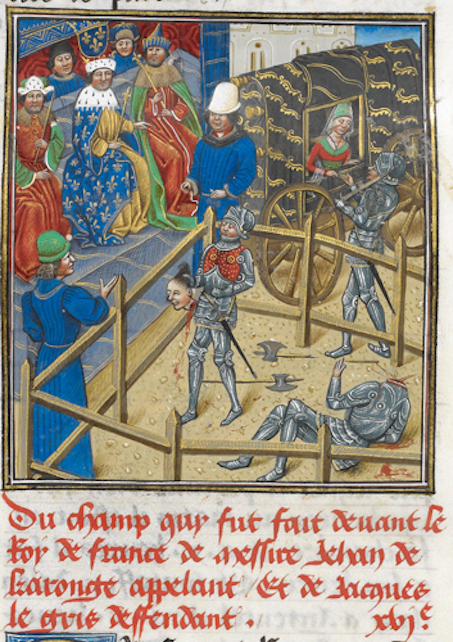 Du champ quy fut fait deuant le
Roy de france de messire Jehan de
karongte appelant / Et de Jacques
le gris deffendant . xvjᵉ